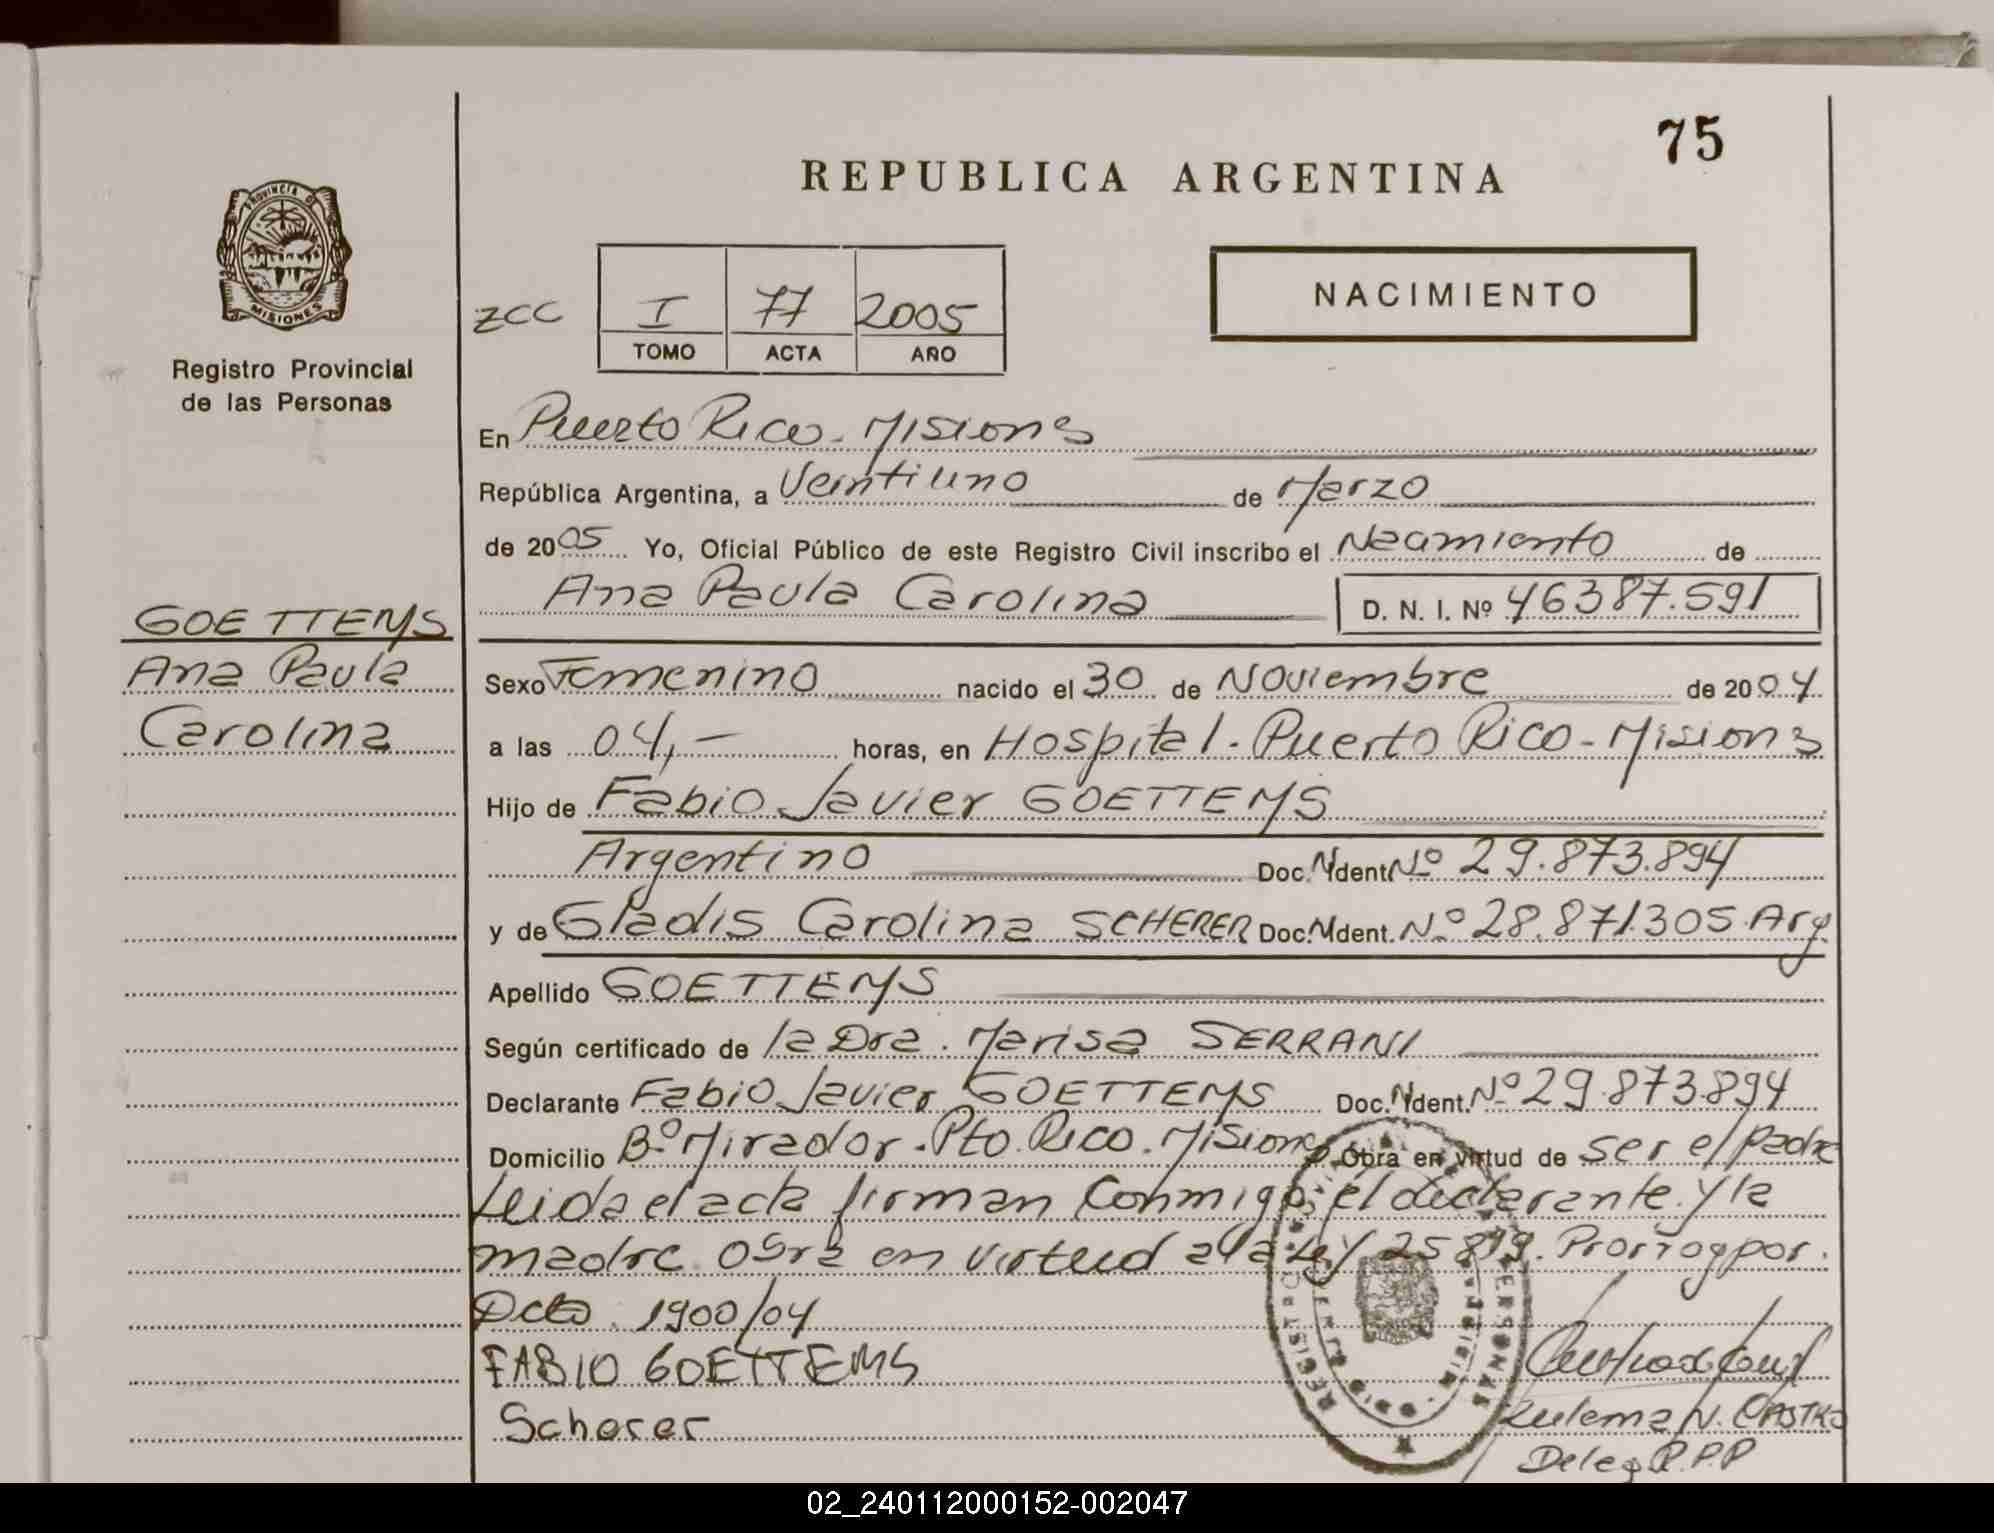 75
REPUBLICA ARGENTINA
PROVINCIA DE
MISIONES
Registro Provincial
de las Personas
ZCC
I 77 2005
TOMO ACTA AÑO
NACIMIENTO
En Puerto Rico - Misiones
República Argentina, a Veintiuno de Marzo
de 2005 Yo, Oficial Público de este Registro Civil inscribo el Nacimiento de
Ana Paula Carolina D. N. I. Nº 46387.591
GOETTEMS
Ana Paula
Carolina
Sexo Femenino nacido el 30 de Noviembre de 2004
a las 04,- horas, en Hospital - Puerto Rico - Misiones
Hijo de Fabio Javier GOETTEMS
Argentino Doc. Ident. Nº 29.873.894
y de Gladis Carolina SCHERER Doc. Ident. Nº 28.871.305 Arg.
Apellido GOETTEMS
Según certificado de la Dra. Marisa SERRANI
Declarante Fabio Javier GOETTEMS Doc. Ident. Nº 29.873.894
Domicilio Bº Mirador - Pto. Rico - Misiones Obra en virtud de ser el padre
Leida el acta firman Conmigo, el declarante y la
madre. Obra en virtud a la Ley 25819. Prorrog por.
Dcto. 1900/04
FABIO GOETTEMS
Scherer
Zulema N. CASTRO
Deleg. R.P.P
02_240112000152-002047